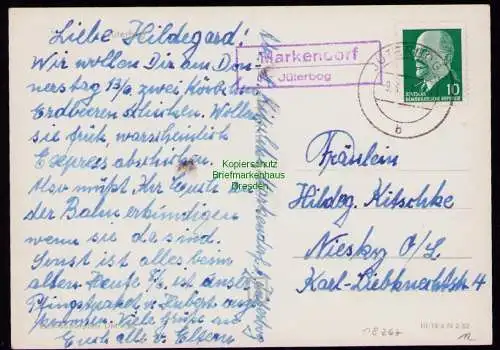 Liebe Hildegard!
Wir wollen Dir am Don-
nerstag 13/6 zwei Körbchen
Erdbeeren schicken. Wollen
sie früh, warscheinlich
Express abschicken.
Also müßt Ihr Euch bei
der Bahn erkundigen
wenn sie da sind.
Sonst ist alles beim
alten. Heute 8/6. ist unser
Pfingstpaket v. Hubert ange
kommen. Viele Grüße an
Euch alle v. Eltern
Markendorf
Jüterbog
JÜTERBOG
b
DEUTSCHE
DEMOKRATISCHE REPUBLIK
10
Kopierschutz
Briefmarkenhaus
Dresden
Fräulein
Hildeg. Kitschke
Niesky O/L
Karl-Liebknechtstr.
4